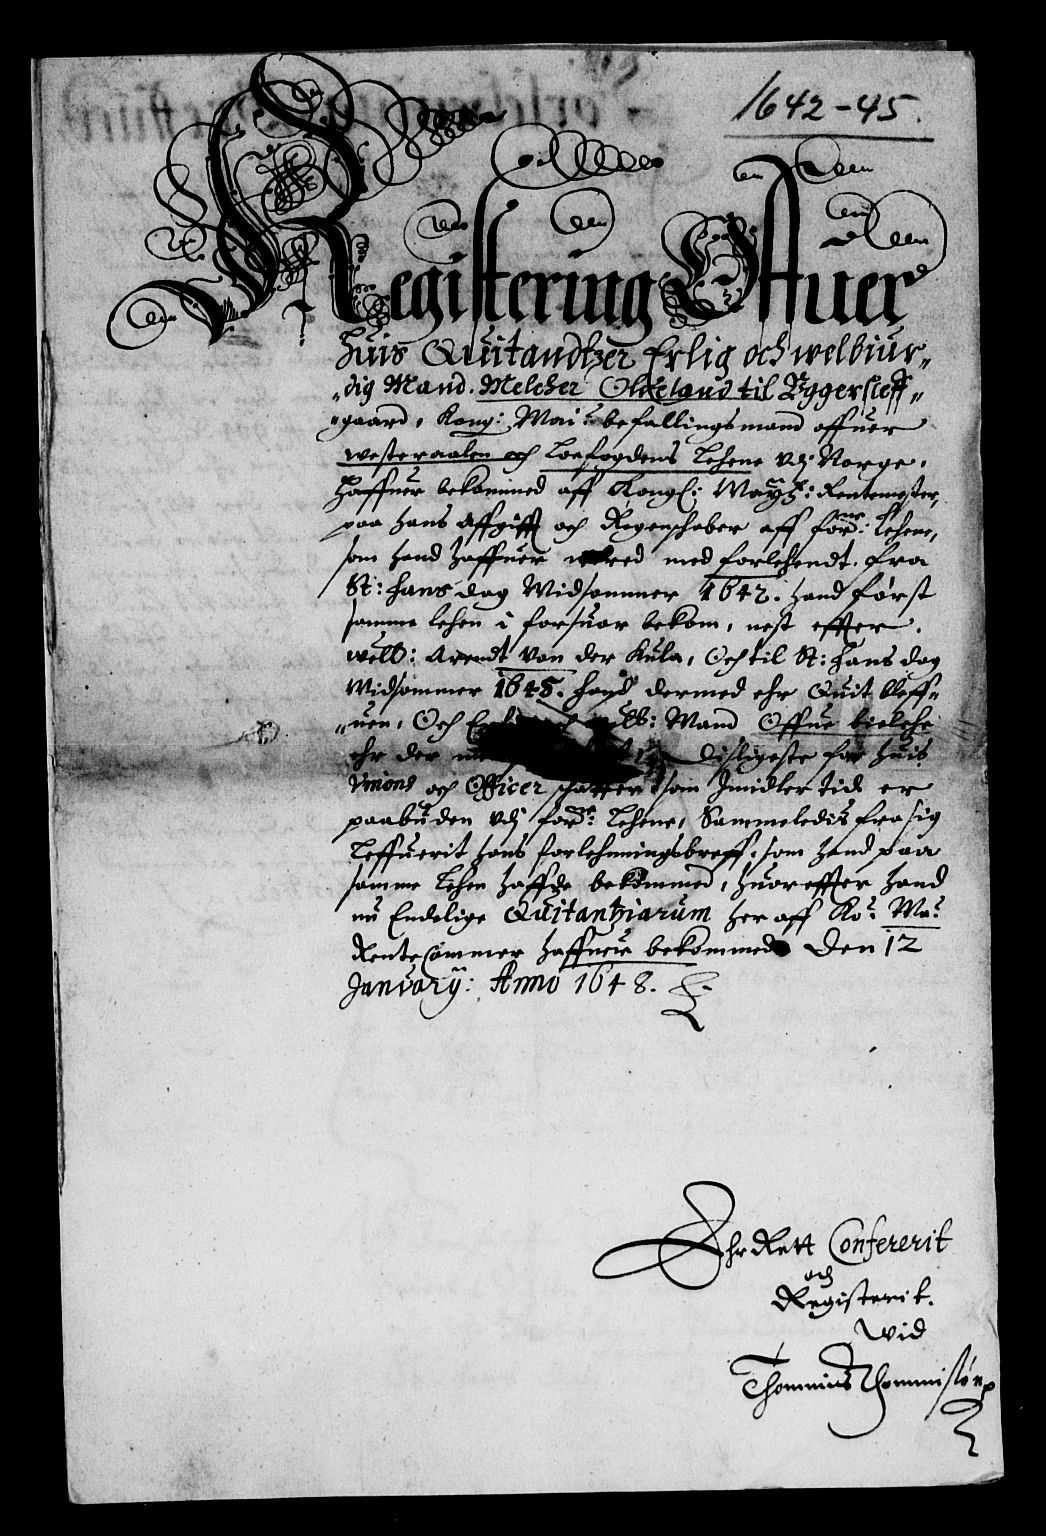 1642-45.
Registering Offuer
huis Quitandtzer Erlig och welbiur„
„dig Mand. Melcher Oldeland til Uggersleff„
„gaard, Kong: Mai: befallingsmand offuer
westeraalen och Loefogdens Lehene udj Norge,
haffuer bekommed aff Kongl: Maytz: Rentemester,
paa hans Affgifft och Regenschaber aff forne: Lehene,
som hand haffuer werred med forlehendt. fra
St: hans dag Midsommer 1642. hand först
samme lehen i forsuar bekom, nest effter.
welb: Arendt von der Kula, Och til St: hans dag
Midsommer 1645. hand dermed ehr Quit bleff„
„uen, Och welb: Mand Offue bielche
ehr der disligeste for huis
Unions och Officer schatter som Imidler tid er
paabuden udj forne: Lehene, Sammeledis fra sig
Leffuerit hans forlehningsbreff, som hand paa
samme Lehen haffde bekommed, huoreffter hand
nu Endelige Quitantziarum her aff Ko: Ma:
Rente Cammer haffuer bekommed Den 12
January: Anno 1648.
Ehr Rett Confererit
och
Registerit.
wid
Thommis Thommisiön